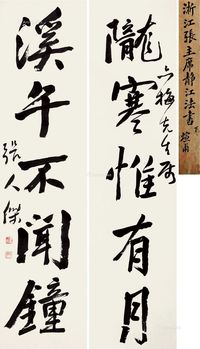 浙江張主席靜江法書
隴寒惟有月
六梅先生屬
溪午不聞鐘
張人傑